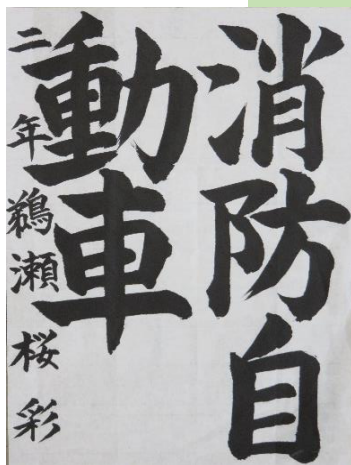 消防自
動車
二年 鵜瀬 桜彩